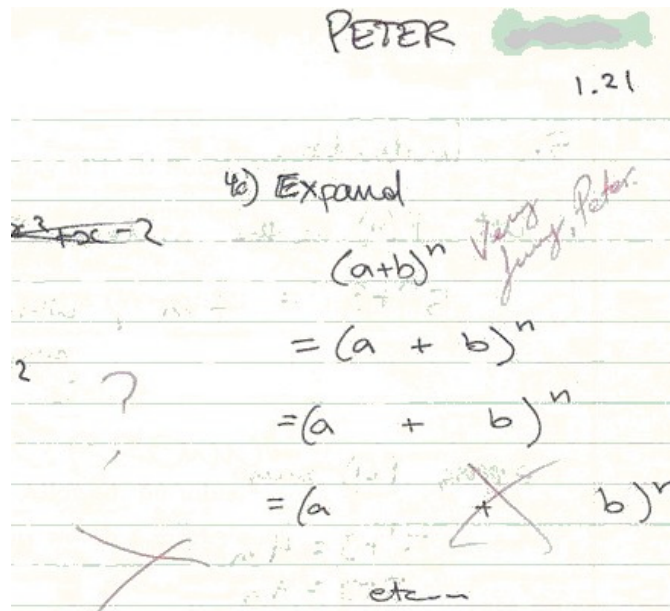 PETER
1.21
4c) Expand
x² + x - 2
Very
funny, Peter.
(a+b)ⁿ
= (a + b)ⁿ
2
?
= (a + b)ⁿ
= (a + b)ⁿ
etc...